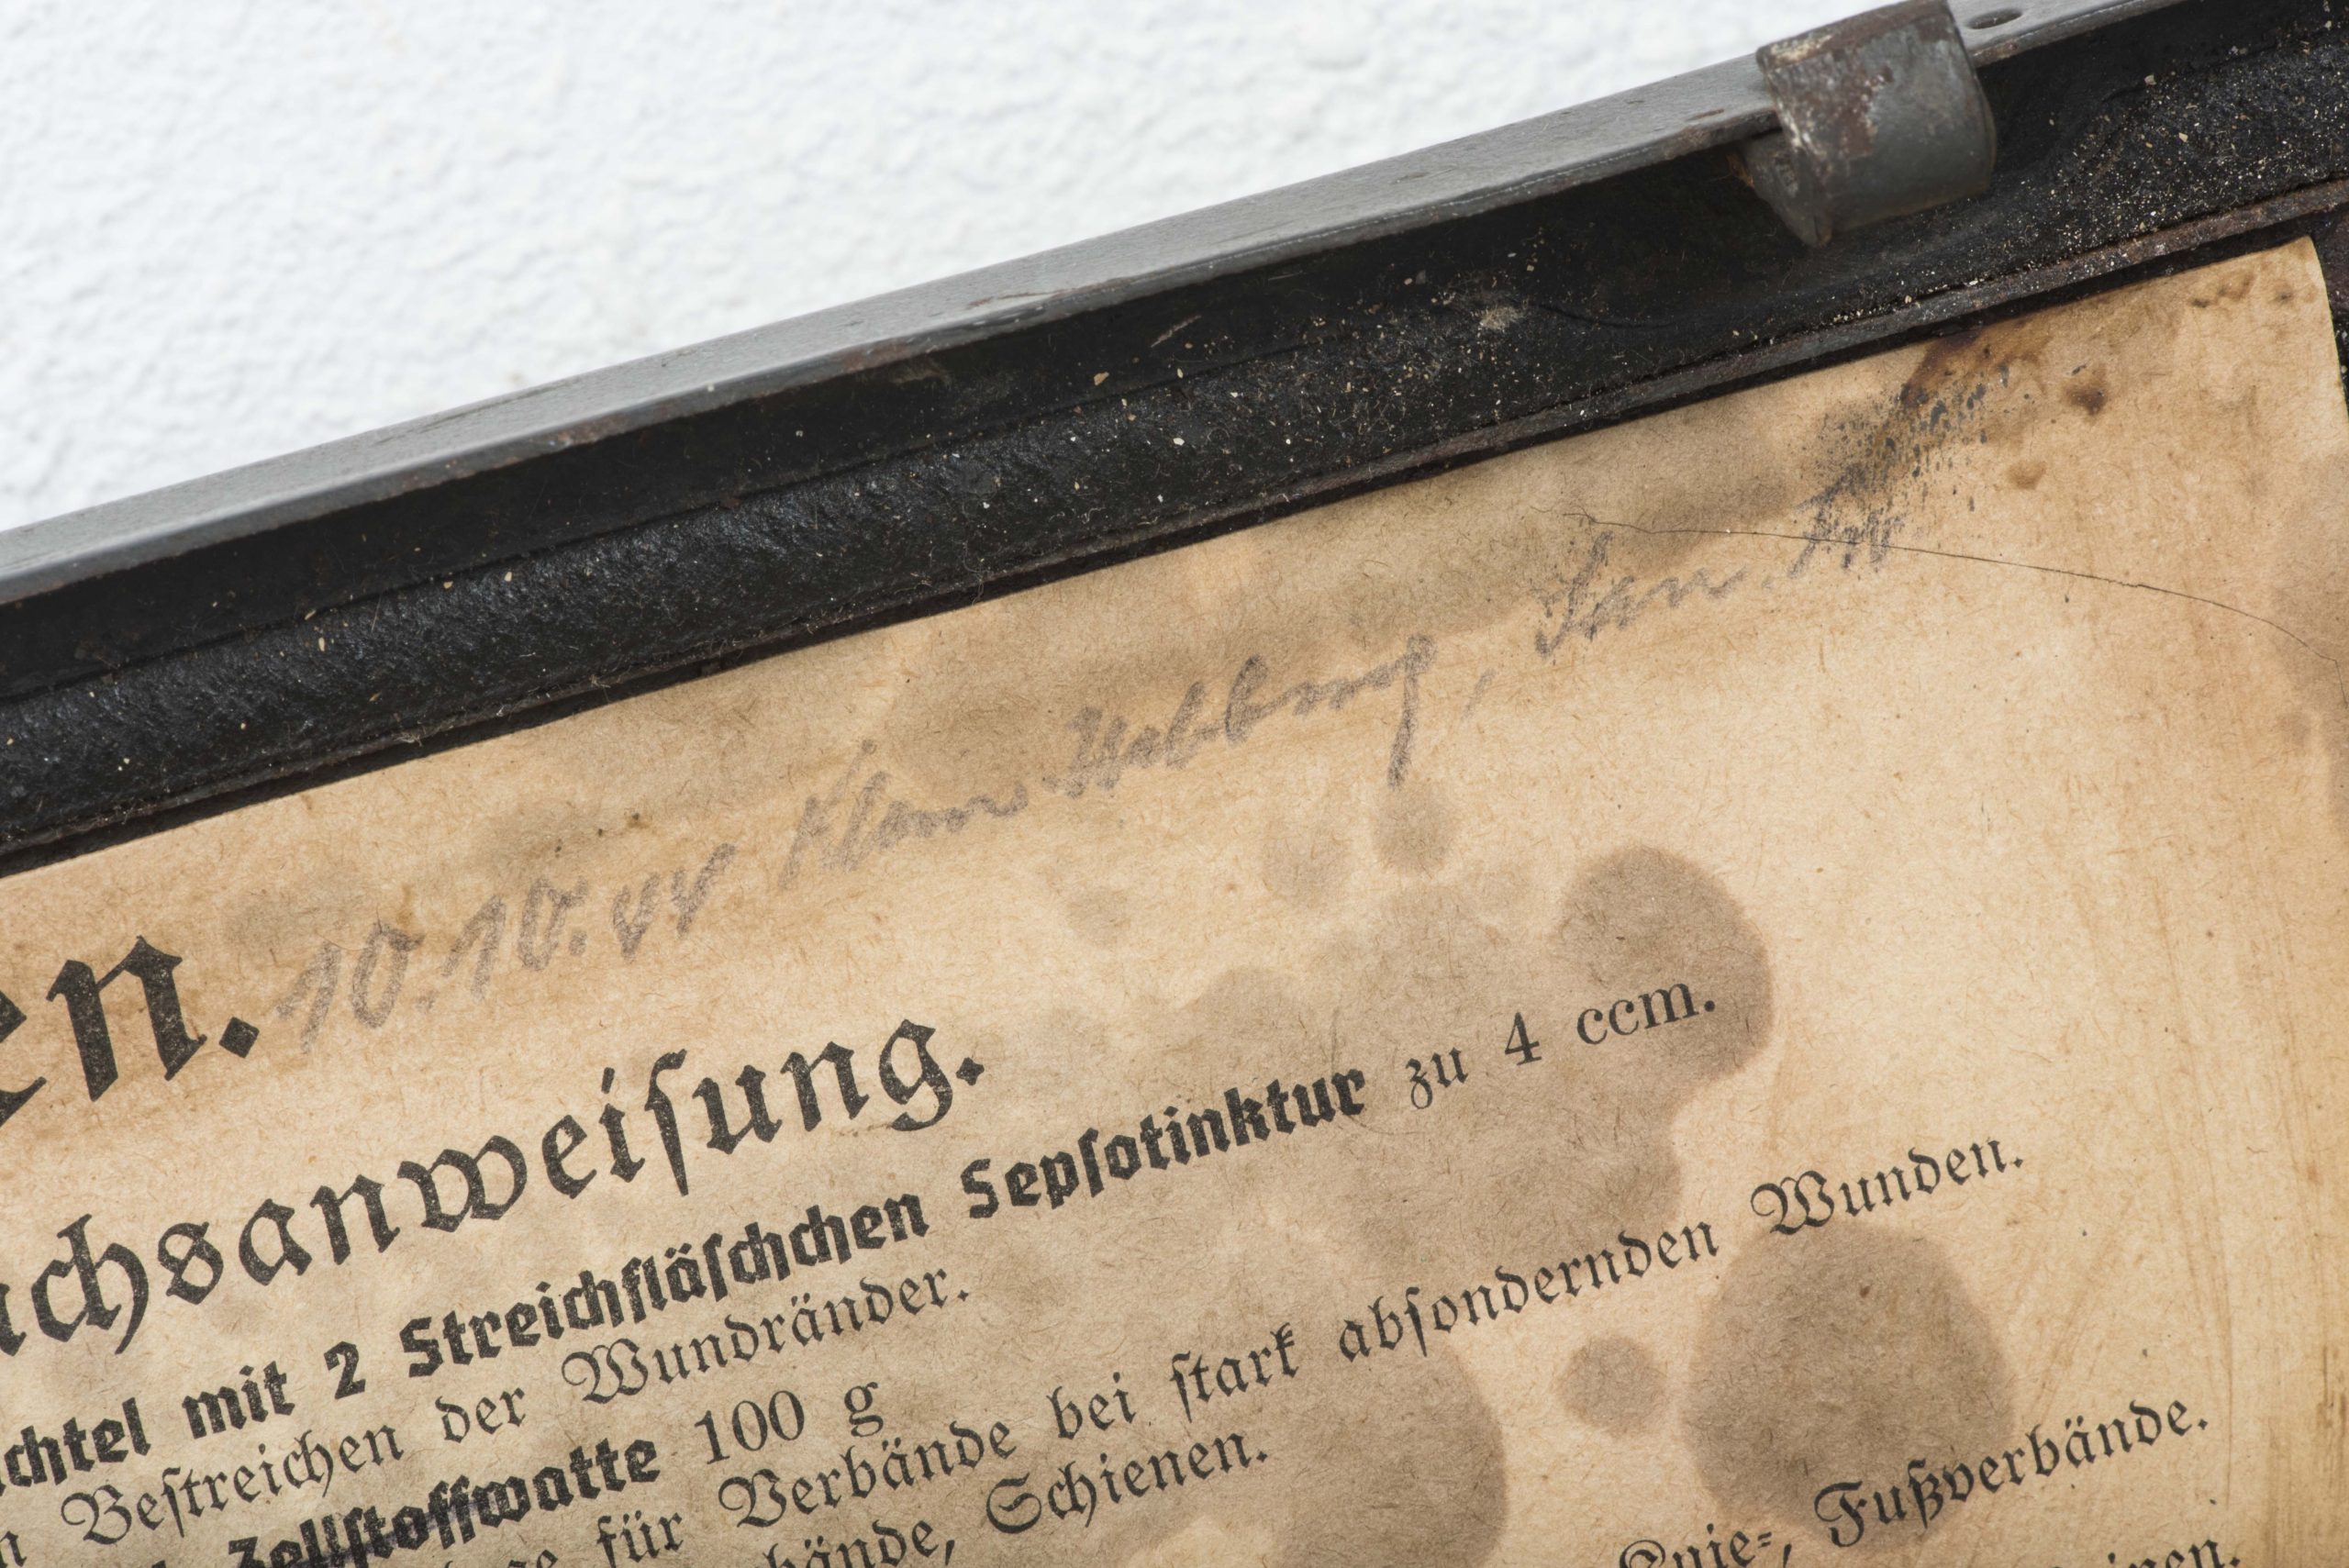 10.10.44
en.
chsanweiſung.
chtel mit 2 Streichfläſchchen Sepſotinktur zu 4 ccm.
Beſtreichen der Wundränder.
Zellſtoffwatte 100 g
für Verbände bei ſtark abſondernden Wunden.
bände, Schienen.
Knie-, Fußverbände.